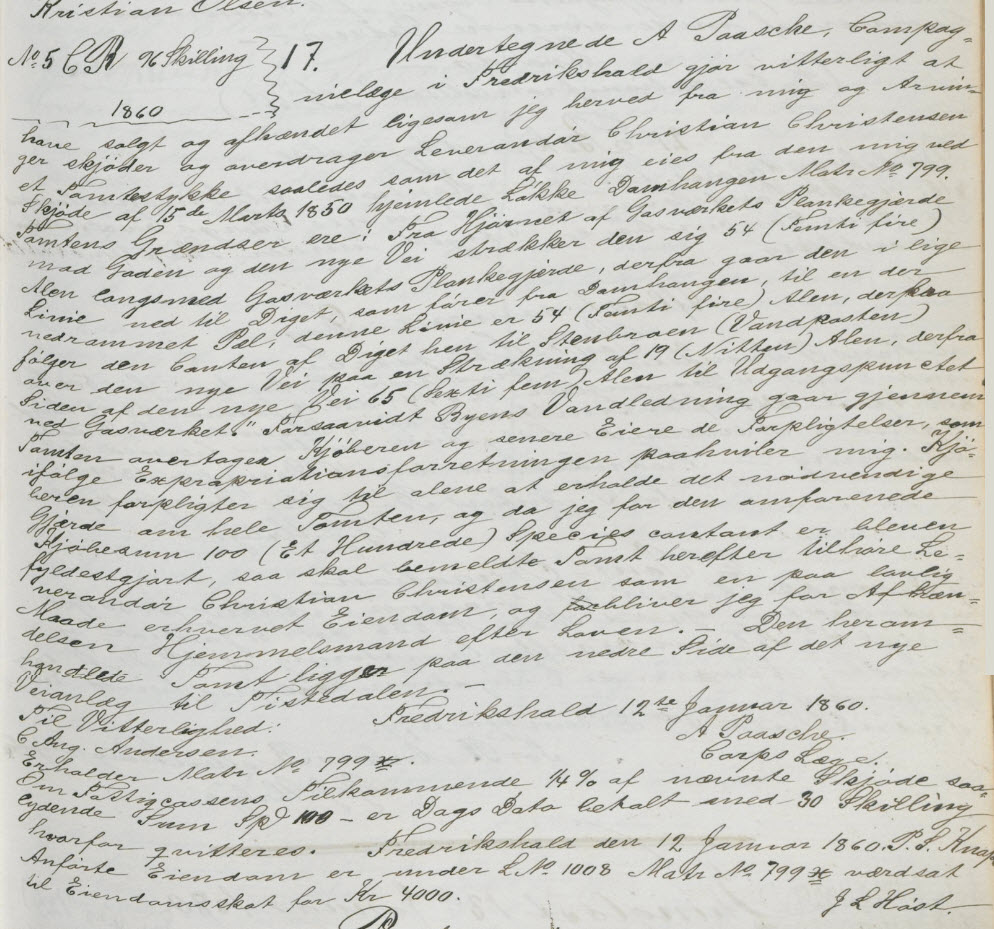 Kristian Olsen.
No 5 C R 96 Skilling 17. Undertegnede A Paasche, Compag=
1860 nielæge i Fredrikshald gjør vitterligt at
have solgt og afhændet ligesom jeg herved fra mig og Arvin-
ger skjøder og overdrager Leverandør Christian Christensen
et Tomtestykke saaledes som det af mig eies fra den mig ved
Skjøde af 15de Marts 1850 hjemlede Løkke Damhangen Matr No 799.
Tomtens Grændser ere: Fra Hjørnet af Gasværkets Plankegjerde
mod Gaden og den nye Vei strækker den sig 54 (Femti fire)
Alen langsmed Gasværkets Plankegjerde, derfra gaar den i lige
Linie ned til Diget, som fører fra Damhangen, til en der
nedrammet Pæl; denne Linie er 54 (Femti fire) Alen, derpaa
følger den Canten af Diget hen til Stenbroen (Vandposten)
over den nye Vei paa en Strækning af 19 (Nitten) Alen, derfra
Siden af den nye Vei 65 (Sexti fem) Alen til Udgangspunctet
ved Gasværket." Forsaavidt Byens Vandledning gaar gjennem
Tomten overtager Kjøberen og senere Eiere de Forpligtelser, som
ifølge Expropriationsforretningen paahviler mig. Kjø-
beren forpligter sig til alene at erholde det nødvendige
Gjerde om hele Tomten, og da jeg for den omforenede
Kjøbesum 100 (Et Hundrede) Species contant er bleven
fyldestgjort, saa skal bemeldte Tomt herefter tilhøre Le=
verandør Christian Christensen som en paa lovlig
Maade erhvervet Eiendom, og bliver jeg for Afhæn=
delsen Hjemmelsmand efter Loven. - Den heram=
handlede Tomt ligger paa den nedre Side af det nye
Veianlæg til Tistedalen. -
Fredrikshald 12te Januar 1860.
Til Vitterlighed: A Paasche.
C Aug. Andersen. Corps Læge.
Erholder Matr No 799
Om Fattigcassens Tilkommende 1/4 % af nævnte Skjøde saa-
lydende Sum Spd 100 - er Dags Dato betalt med 30 Skilling
hvorfor qvitteres. Fredrikshald den 12 Januar 1860. P. S. Knap
Anførte Eiendom er under L No 1008 Matr No 799 værdsat
til Eiendomsskat for Kr 4000. J L Høst.